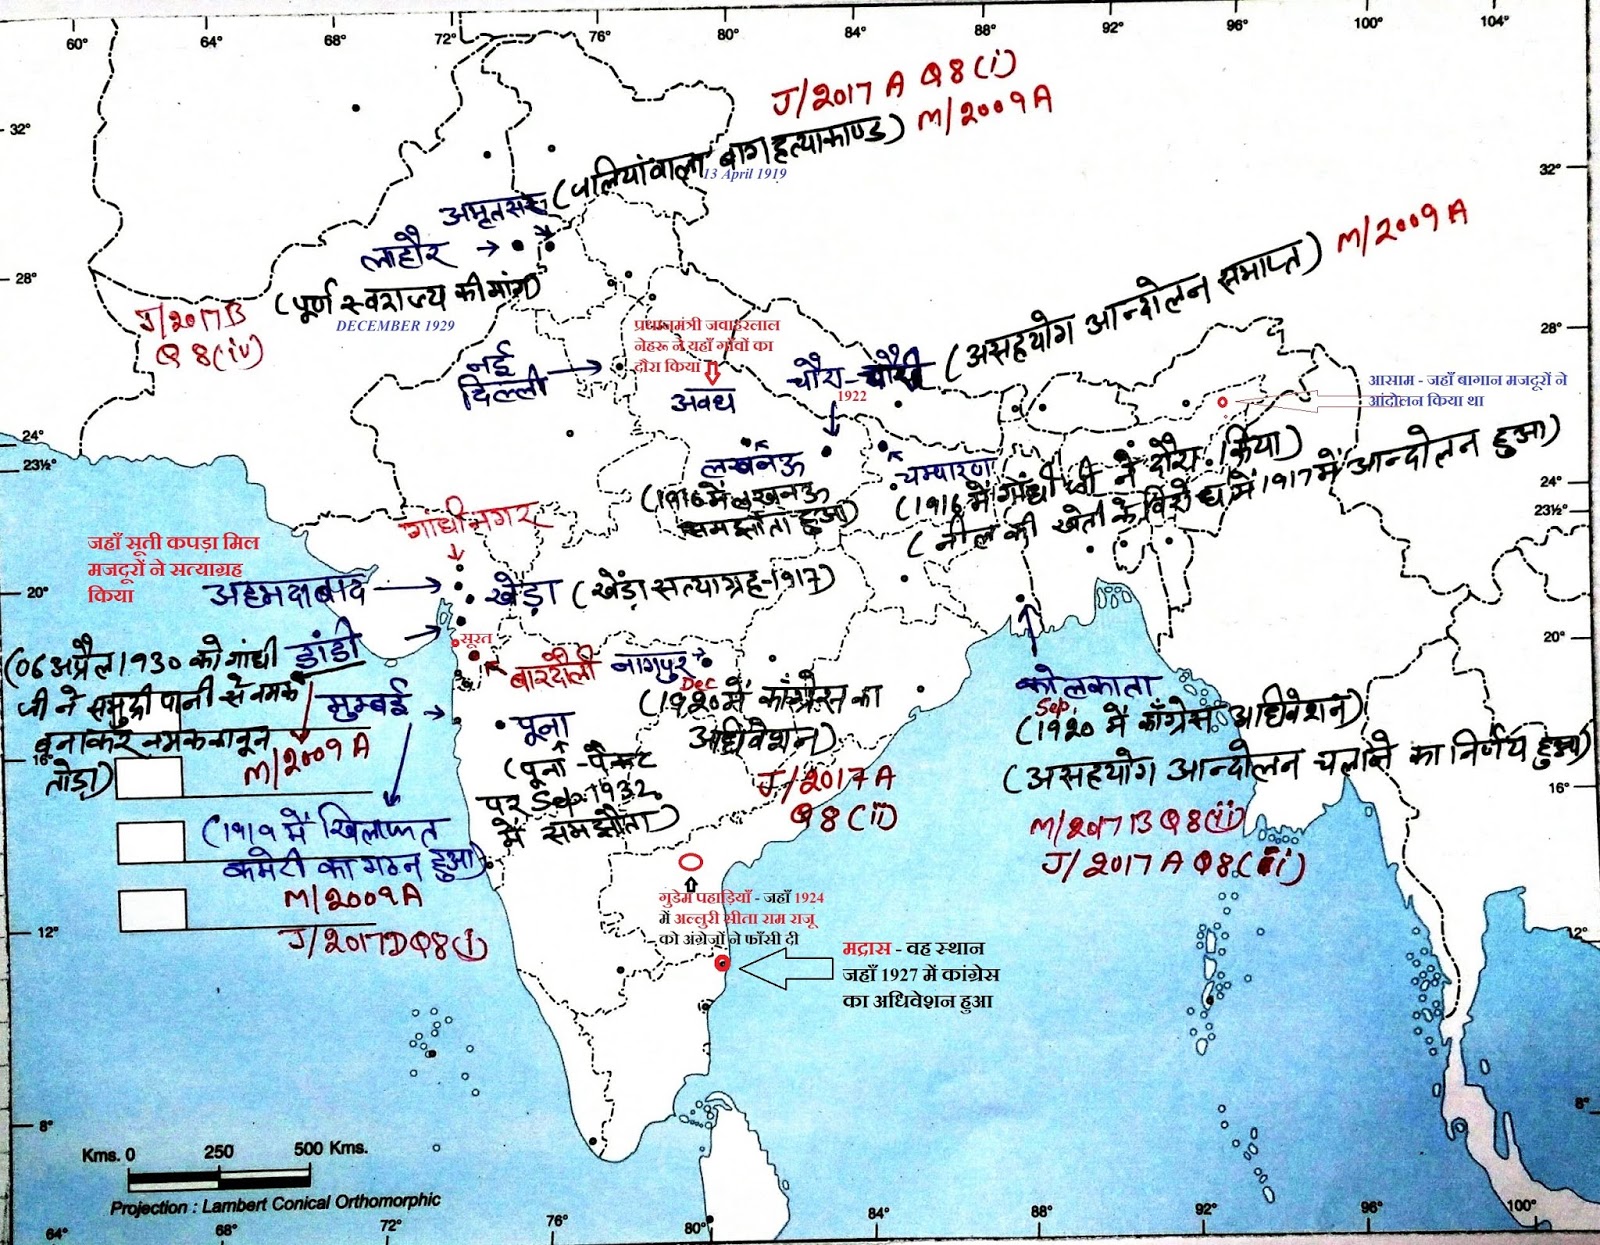 60°
64°
68°
72°
76°
80°
84°
88°
92°
96°
100°
104°
32°
28°
24°
23½°
20°
16°
12°
8°
32°
28°
24°
23½°
20°
16°
12°
8°
J/2017 A Q8(i)
M/2009A
अमृतसर (जलियांवाला बाग हत्याकाण्ड)
13 April 1919
लाहौर
(पूर्ण स्वराज्य की मांग)
DECEMBER 1929
J/2017B
Q8(iv)
नई
दिल्ली
प्रधानमंत्री जवाहरलाल
नेहरू ने यहाँ गाँवों का
दौरा किया
अवध
चौरा-चौरी (असहयोग आन्दोलन समाप्त) M/2009A
1922
आसाम - जहाँ बागान मजदूरों ने
आंदोलन किया था
लखनऊ
(1916 में लखनऊ
समझौता हुआ)
चम्पारण
(1916 में गाँधी जी ने दौरा किया)
(नील की खेती के विरोध में 1917 में आन्दोलन हुआ)
गांधीनगर
जहाँ सूती कपड़ा मिल
मजदूरों ने सत्याग्रह
किया
अहमदाबाद
खेड़ा (खेड़ा सत्याग्रह-1917)
सूरत
(06 अप्रैल 1930 को गांधी डांडी
जी ने समुद्री पानी से नमक
बनाकर नमक कानून
तोड़ा)
M/2009A
बारदोली
मुम्बई
(1919 में खिलाफत
कमेटी का गठन हुआ)
M/2009A
J/2017D Q8(i)
पूना
(पूना-पैक्ट
पर Sep. 1932
में समझौता)
नागपुर
Dec
(1920 में काँग्रेस का
अधिवेशन)
J/2017A
Q8(ii)
कोलकाता
Sep.
(1920 में काँग्रेस अधिवेशन)
(असहयोग आन्दोलन चलाने का निर्णय हुआ)
M/2017B Q8(ii)
J/2017A Q8(iii)
गुडेम पहाड़ियाँ - जहाँ 1924
में अल्लुरी सीता राम राजू
को अंग्रेजों ने फाँसी दी
मद्रास - वह स्थान
जहाँ 1927 में कांग्रेस
का अधिवेशन हुआ
Kms. 0 250 500 Kms.
Projection : Lambert Conical Orthomorphic
64°
68°
72°
76°
80°
84°
88°
92°
96°
100°